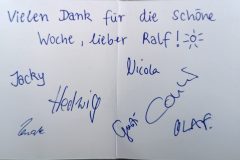 Vielen Dank für die schöne
Woche, lieber Ralf!
Jacky
Nicola
Hedwig
Renate
OLAF.